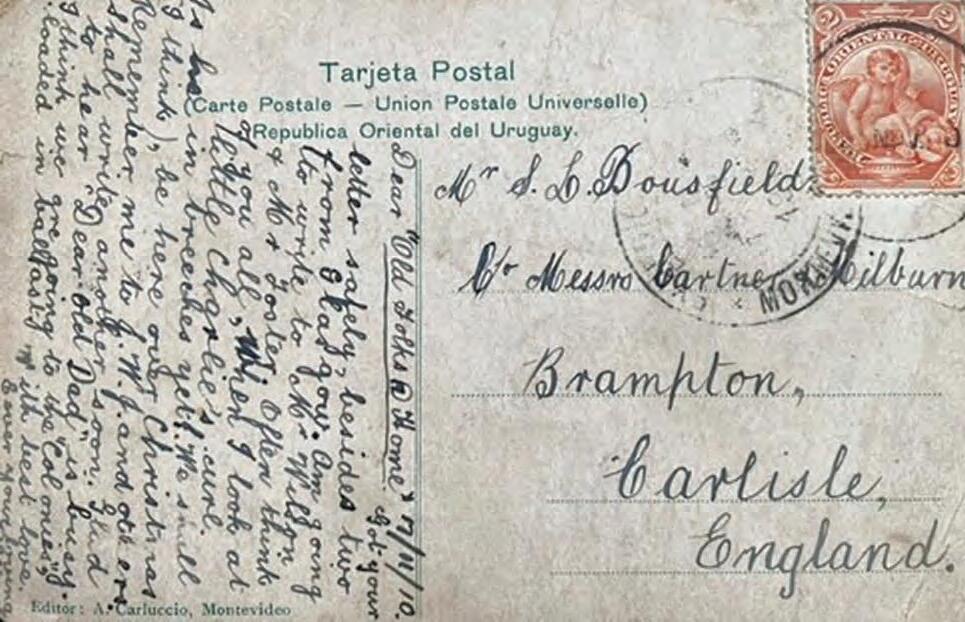 Tarjeta Postal
(Carte Postale — Union Postale Universelle)
Republica Oriental del Uruguay.
Mr S. L. Bousfield.
C/o Messrs Cartner Milburn
Brampton,
Carlisle,
England.
Dear "Old Folks @ Home" 17/11/10.
Got your
letter safely, besides two
from Glasgow. Am going
to write to Mr Wilson
& Mr Foster. Often think
of you all, When I look at
little Charlie's curl.
Is he in breeches yet. We shall
(I think), be here over Christmas
Remember me to J. W. J. and others
shall write another soon. Glad
to hear "Dear old Dad" is busy.
I think we are going to the "Colonies",
loaded in ballast, with best love.
Ever your loving
Editor: A. Carluccio, Montevideo